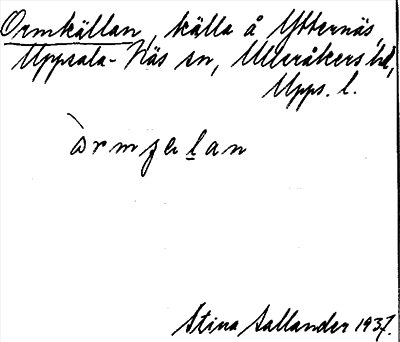 Ormkällan, källa å Ytternäs,
Uppsala-Näs sn, Ulleråkers hd,
Upps. l.
òrmɟel̲an
Stina Sallander 1937.